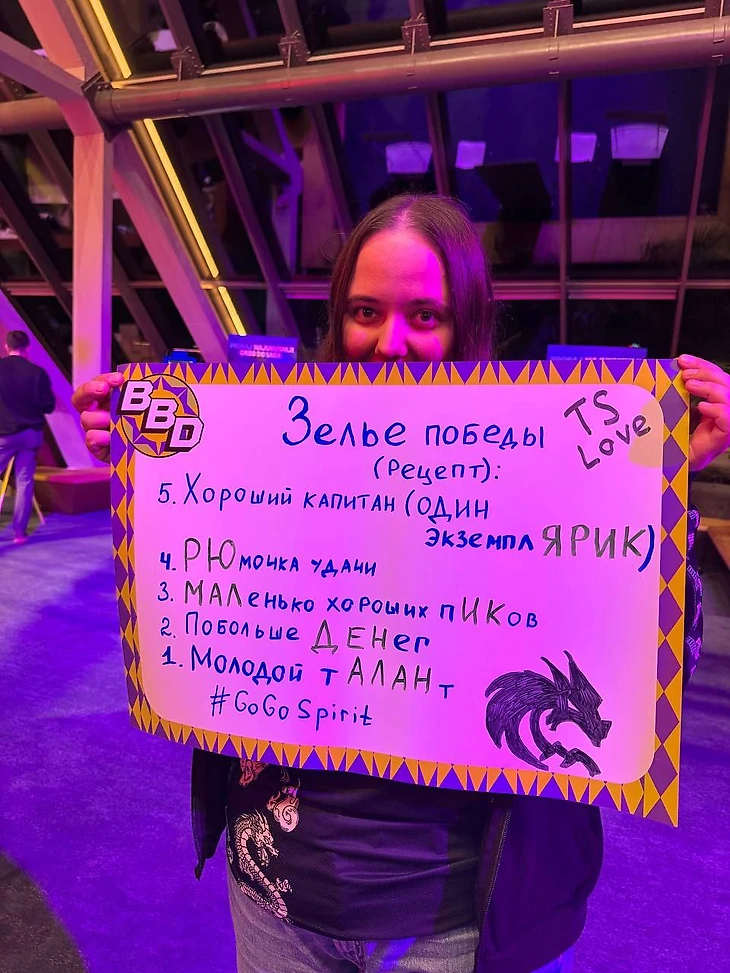 BBD
TS
Love
Зелье победы
(Рецепт):
5. Хороший капитан (один
экземплЯРИК)
4. РЮмочка удачи
3. МАЛенько хороших пИКов
2. Побольше ДЕНег
1. Молодой тАЛАНт
#GoGoSpirit